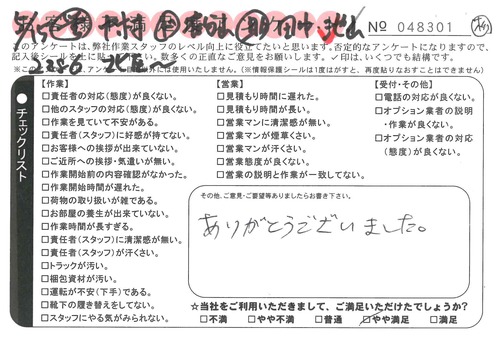 No 048301
このアンケートは、弊社作業スタッフのレベル向上に役立てたいと思います。否定的なアンケートになりますので、
記入後シールを上に
数多くの正直なご意見をお願いします。✓印は、いくつでも結構です。
外には使用いたしません。(※情報保護シールは1度はがすと、再度貼りなおすことはできません)
チェックリスト
【作業】
□責任者の対応(態度)が良くない。
□他のスタッフの対応(態度)が良くない。
□作業を見ていて不安がある。
□責任者(スタッフ)に好感が持てない。
□お客様への挨拶が出来ていない。
□ご近所への挨拶・気遣いが無い。
□作業開始前の内容確認がなかった。
□作業開始時間が遅れた。
□荷物の取り扱いが雑である。
□お部屋の養生が出来ていない。
□作業時間が長すぎる。
□責任者(スタッフ)に清潔感が無い。
□責任者(スタッフ)が汗くさい。
□トラックが汚い。
□梱包資材が汚い。
□運転が不安(下手)である。
□靴下の履き替えをしてない。
□スタッフにやる気がみられない。
【営業】
□見積もり時間に遅れた。
□見積もり時間が長い。
□営業マンに清潔感が無い。
□営業マンが煙草くさい。
□営業マンが汗くさい。
□営業態度が良くない。
□営業の説明と作業が一致してない。
【受付・その他】
□電話の対応が良くない。
□オプション業者の説明
・作業が良くない。
□オプション業者の対応
(態度)が良くない。
その他、ご意見・ご要望等ありましたらお書き下さい。
ありがとうございました。
☆当社をご利用いただきまして、ご満足いただけたでしょうか?
□不満 □やや不満 □普通 ☑やや満足 □満足